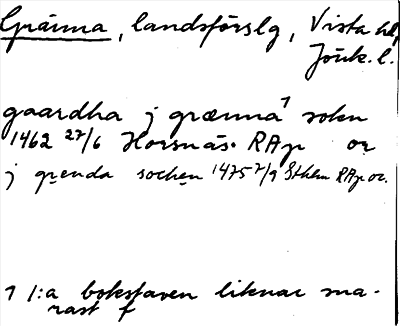 Gränna, landsförslg, Vista hd,
Jönk. l.
gaardha j grænna¹ sokn
1462 27/6 Horsnäs. RAp or
j grenda sochen 1475 7/9 Sthlm RAp or.
1 1:a bokstaven liknar sna-
rast f